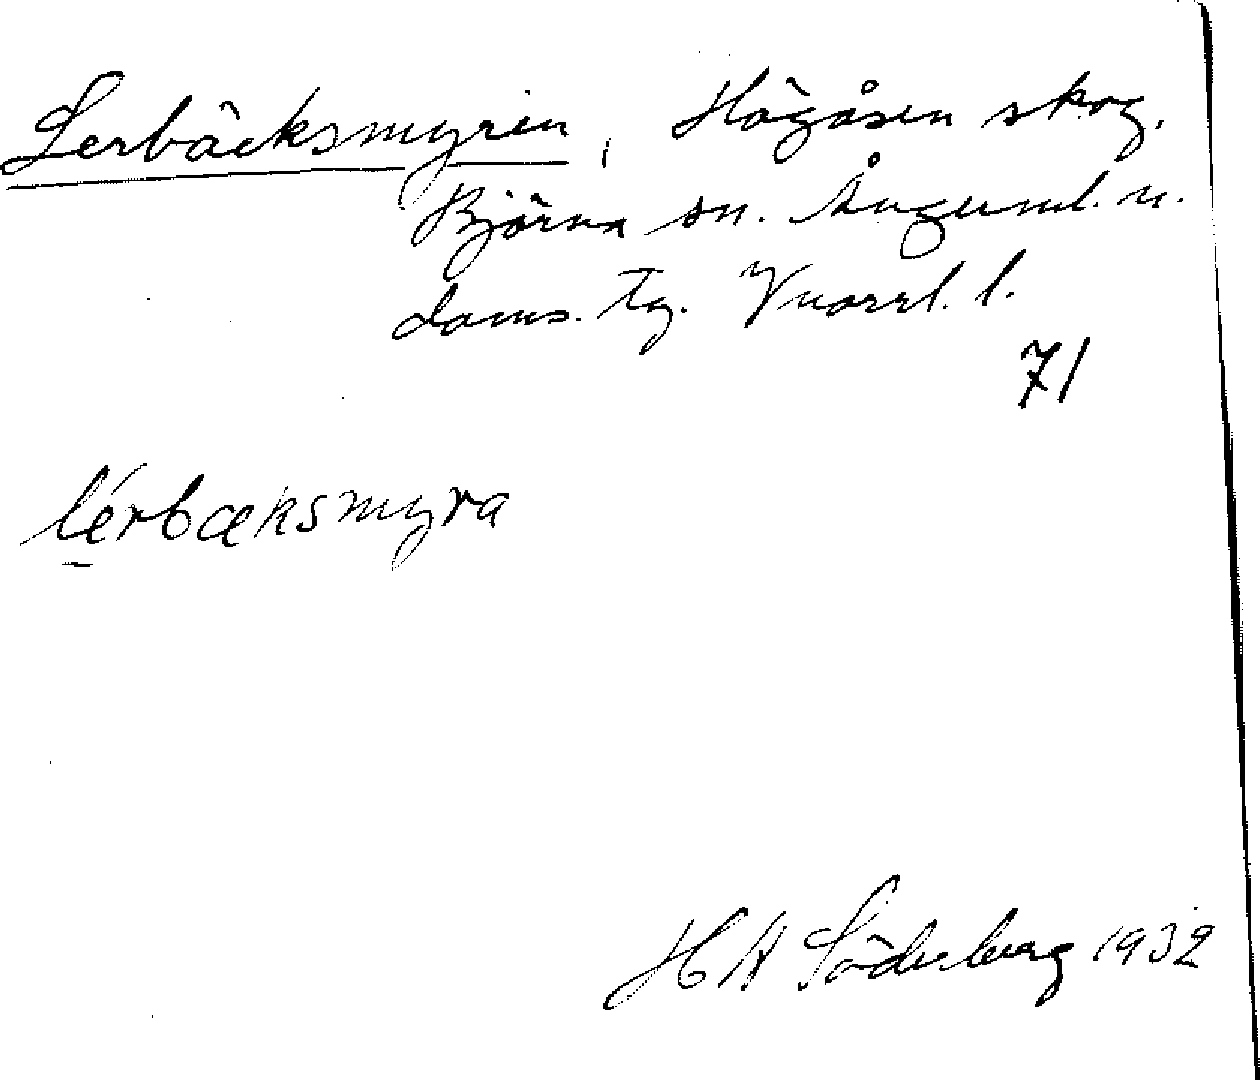 Lerbäcksmyren, Högåsen skog.
Björna sn. Ångerml. n.
doms. tg. Vnorrl. l.
71
lérbæksmyra
H A Söderberg 1932